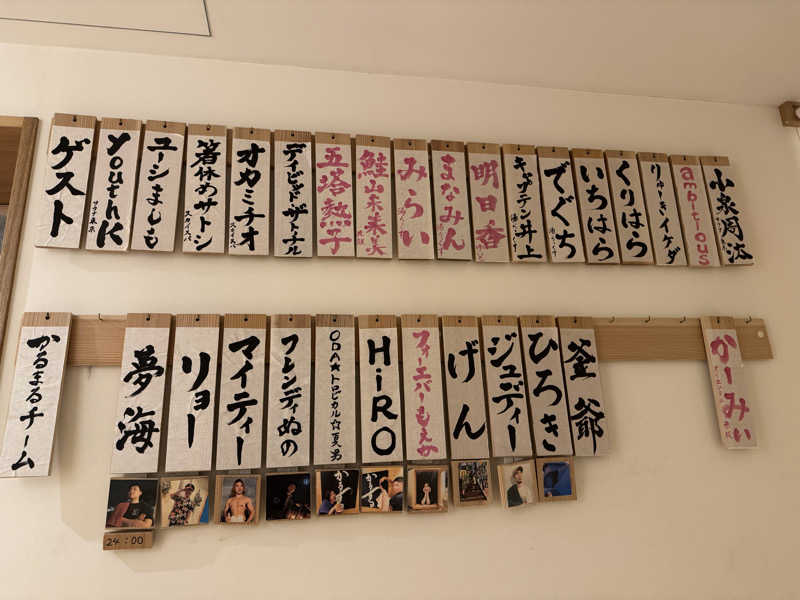 ゲスト
youthK
ユーシましも
箸休めサトシ
スカイスパ
オカミチオ
スカイスパ
デイビッドザトチル
五塔熱子
鮭山未菜美
みらい
まなみん
明日香
キャプテン井上
でぐち
いちはら
くりはら
りゅーきイケダ
ambitious
かるまるチーム
夢海
リョー
マイティー
フレンディぬの
ODA★トロピカル☆夏男
HiRO
フォーエバーもえか
げん
ジュディー
ひろき
釜爺
かーみぃ
24:00